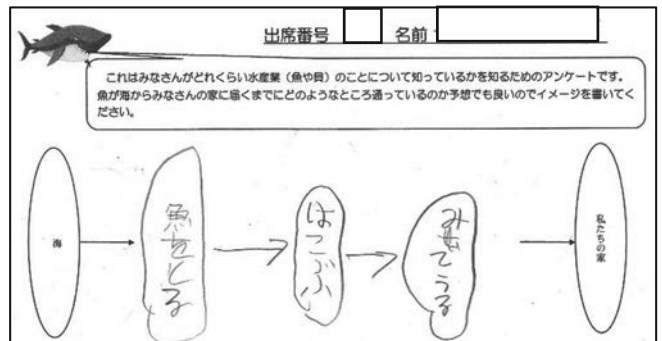 出席番号 名前
これはみなさんがどれくらい水産業（魚や貝）のことについて知っているかを知るためのアンケートです。
魚が海からみなさんの家に届くまでにどのようなところ通っているのか予想でも良いのでイメージを書いてく
ださい。
海
魚をとる
はこぶ
みせでうる
私たちの家